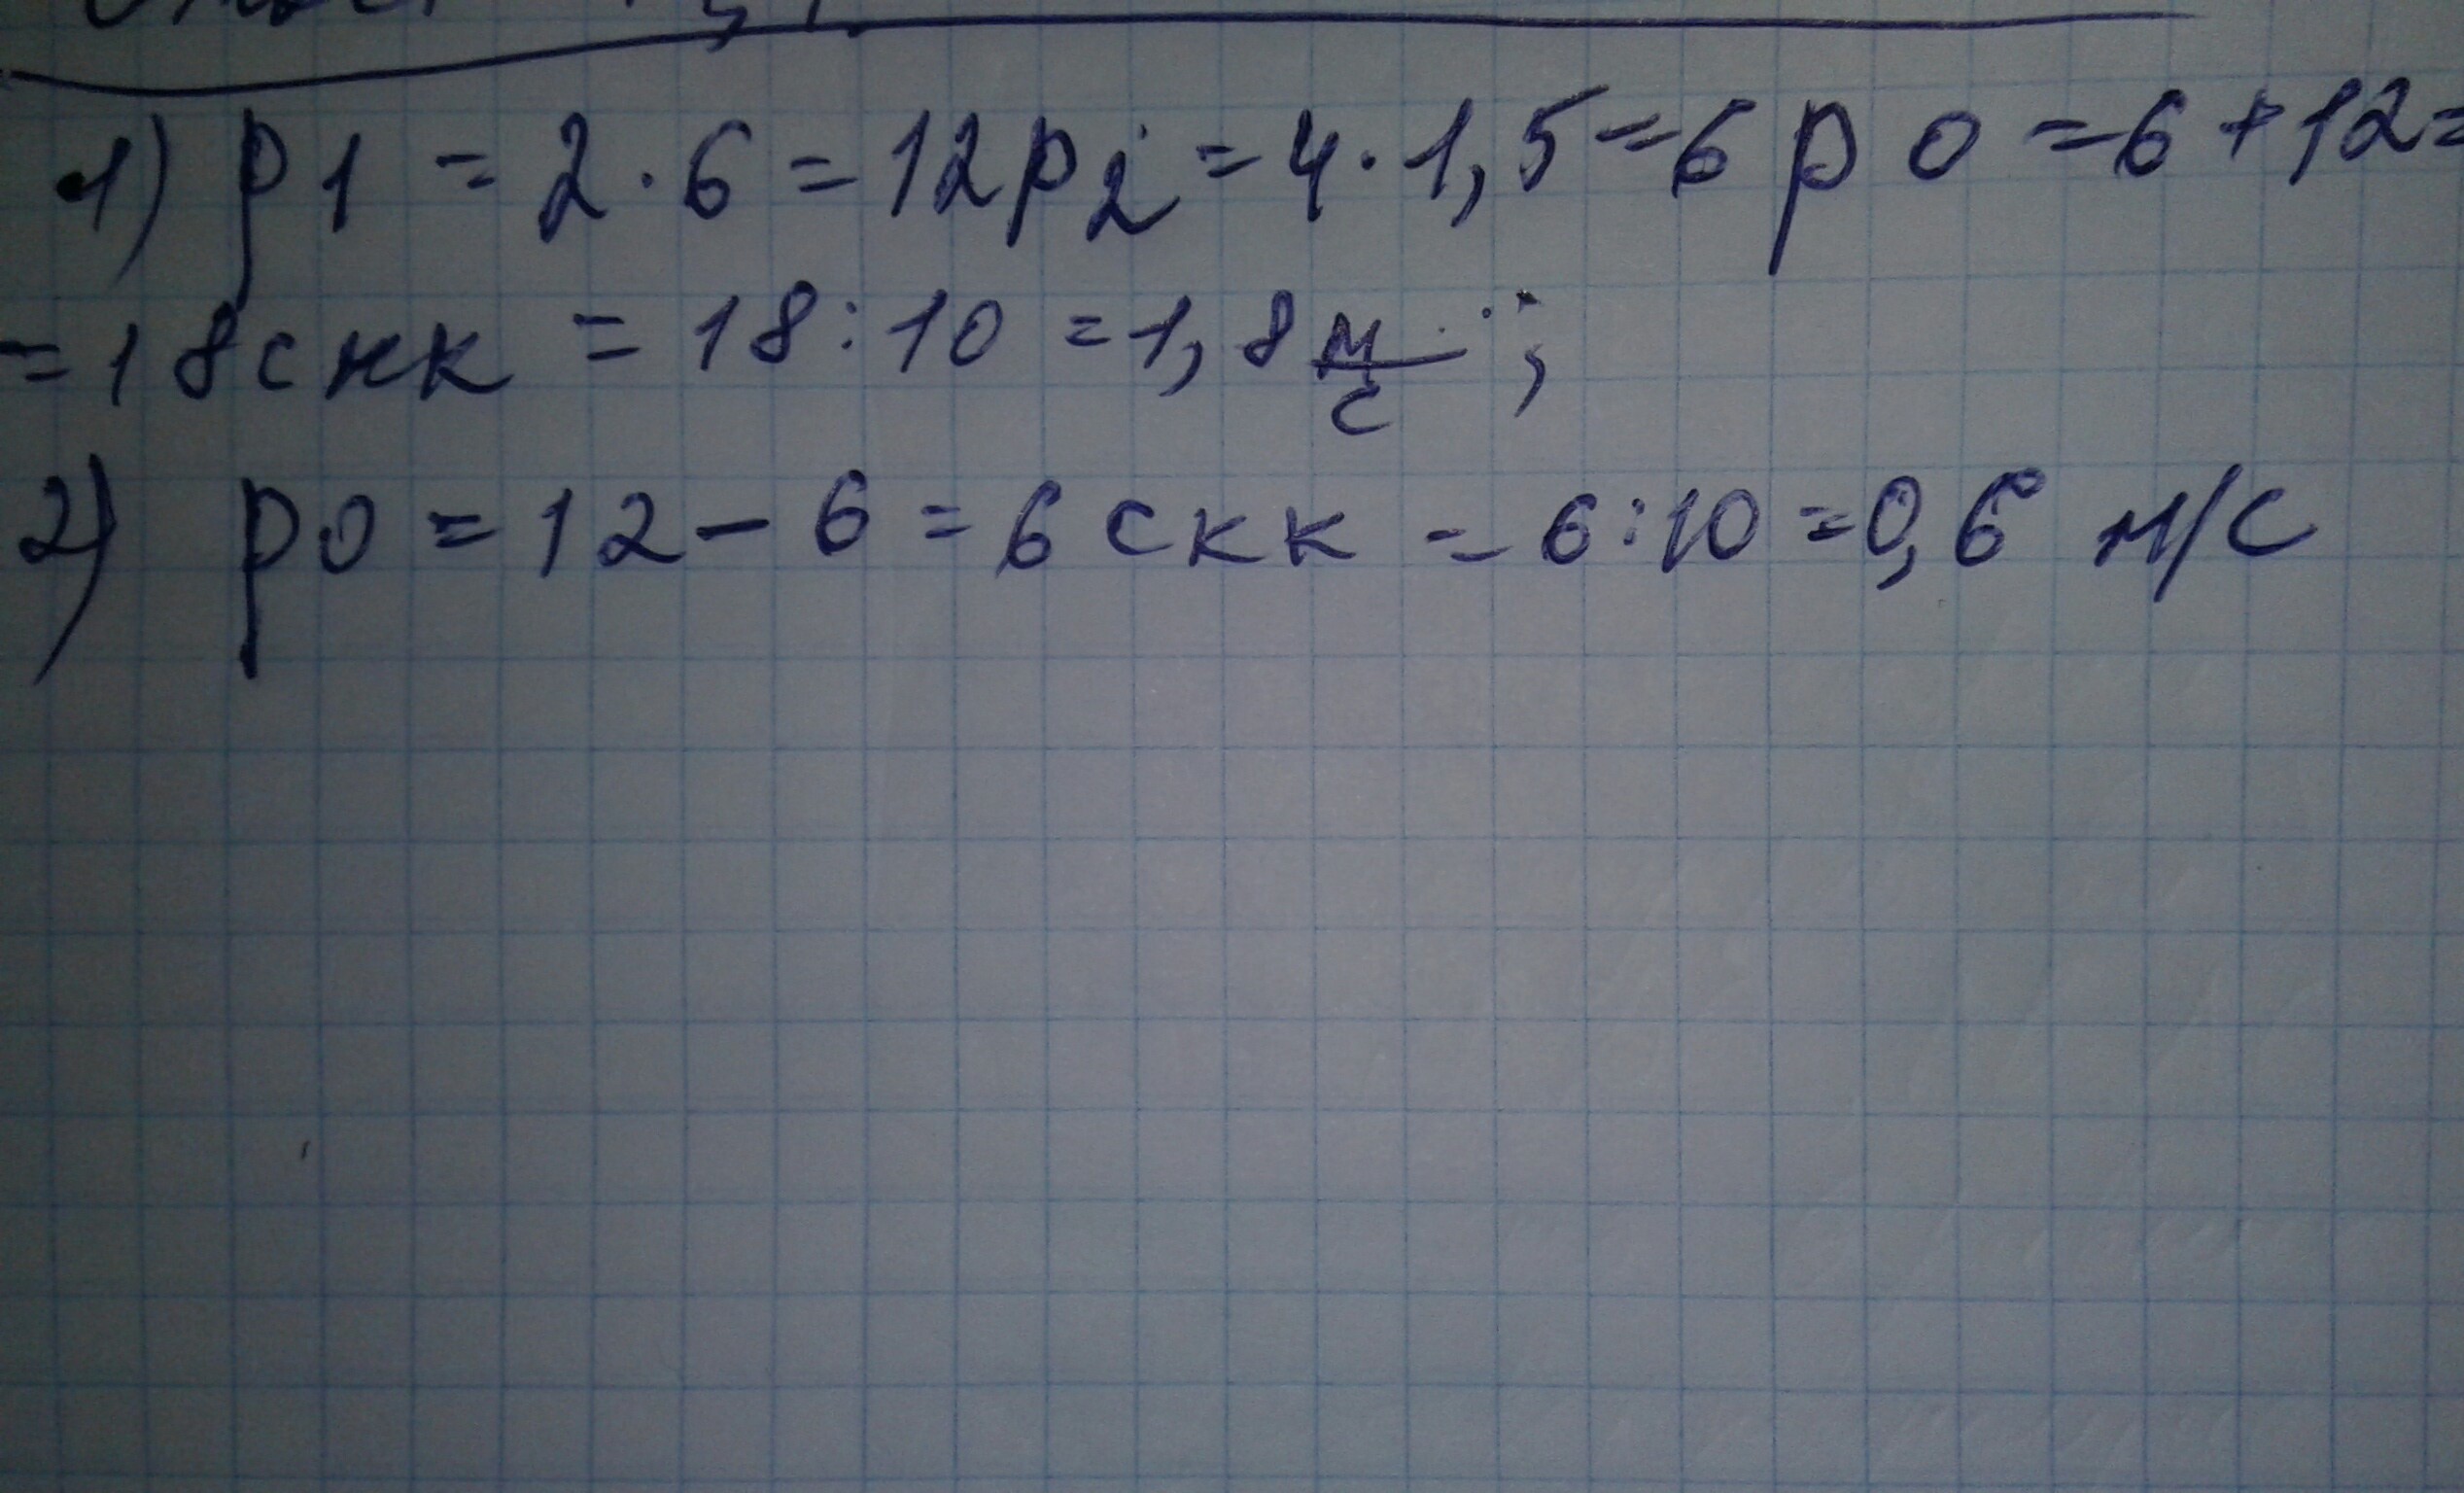 1) p1 = 2·6 = 12 p2 = 4·1,5 = 6 p0 = 6+12=
= 18 скк = 18:10 = 1,8 м/с ;
2) p0 = 12 - 6 = 6 скк = 6:10 = 0,6 м/с